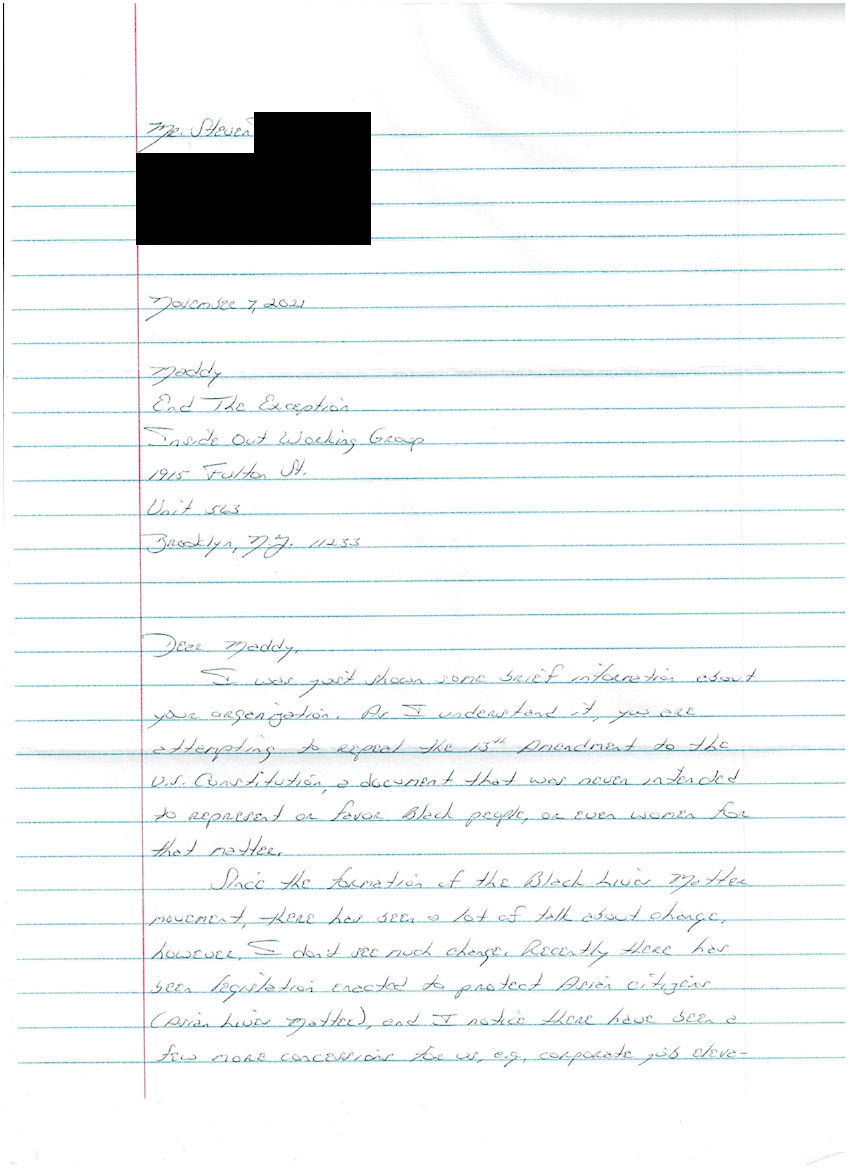 Mr. Steven
November 7, 2021
Maddy
End The Exception
Inside Out Working Group
1915 Fulton St.
Unit 563
Brooklyn, N.Y. 11233
Dear Maddy,
I was just shown some brief information about
your organization. As I understand it, you are
attempting to repeal the 13th Amendment to the
U.S. Constitution, a document that was never intended
to represent or favor Black people, or even women for
that matter.
Since the formation of the Black Lives Matter
movement, there has been a lot of talk about change,
however, I don't see much change. Recently there has
been legislation enacted to protect Asian citizens
(Asian Lives Matter), and I notice there have been a
few more concessions for us, e.g., corporate job eleva-